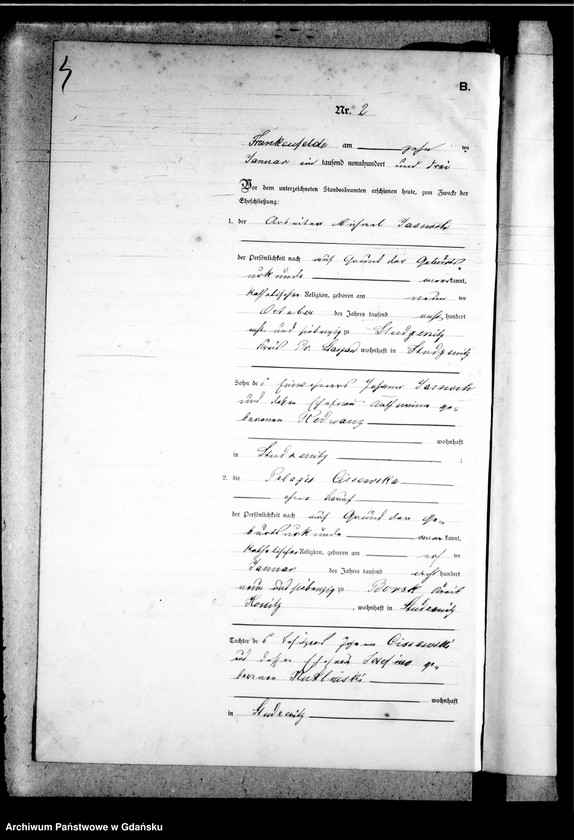 B.
Nr. 2
Frankenfelde am zehn ten
Januar ein tausend neunhundert und drei
Vor dem unterzeichneten Standesbeamten erschienen heute, zum Zwecke der
Eheschließung:
1. der Arbeiter Michael Jasnoch
der Persönlichkeit nach auf Grund der Geburts
urkunde anerkannt,
katholischer Religion, geboren am neun ten
October des Jahres tausend acht hundert
und siebenzig zu Studzenitz
Kreis Pr. Stargard wohnhaft in Studzenitz
Sohn des Johann Jasnoch
und dessen Ehefrau Katharina ge-
borenen
wohnhaft
in Studzenitz ;
2. die Pelagia Cissewska
ohne Beruf
der Persönlichkeit nach auf Grund der Ge-
burtsurkunde anerkannt,
katholischer Religion, geboren am ten
Januar des Jahres tausend acht hundert
neun und siebenzig zu Borsk Kreis
Konitz, wohnhaft in Studzenitz
Tochter des Besitzers Johann Cissewski
und dessen Ehefrau Josefine ge-
borenen
wohnhaft
in Studzenitz
Archiwum Państwowe w Gdańsku